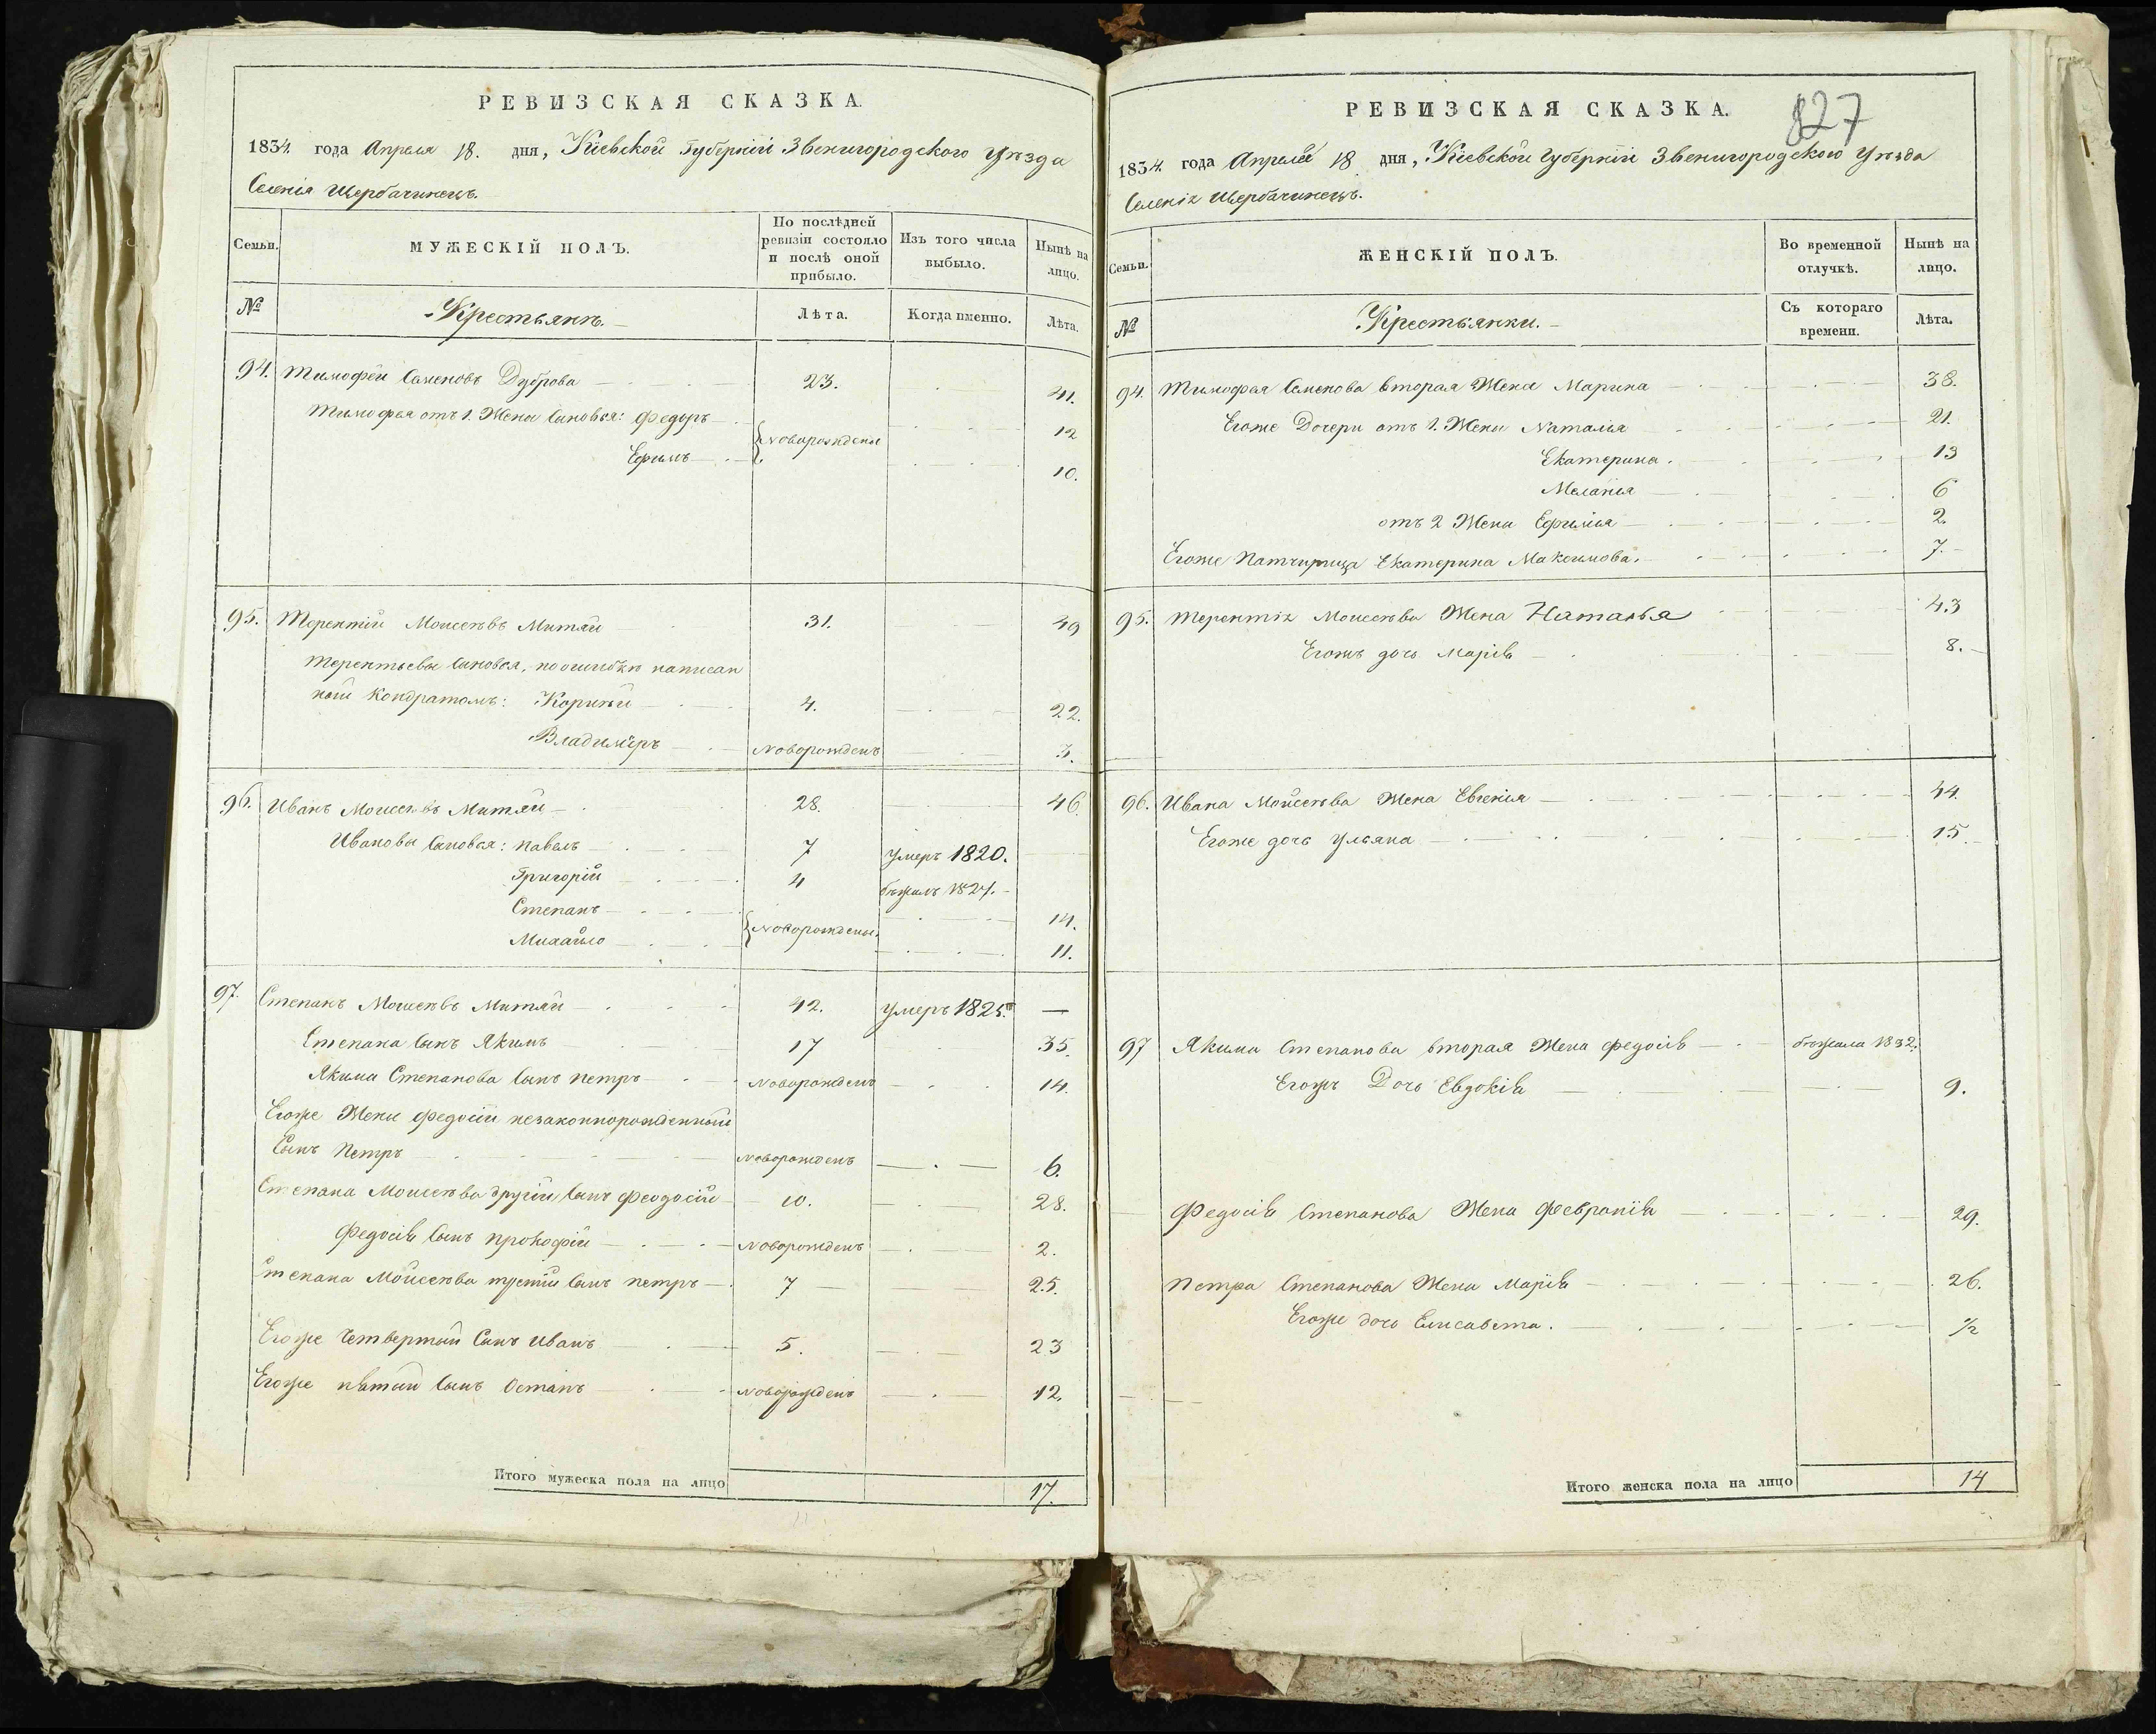 РЕВИЗСКАЯ СКАЗКА.
1834. года Апреля 18. дня, Кіевской Губерніи Звенигородского Уѣзда
Селенія Щербачинецъ.
Семьи.
МУЖЕСКІЙ ПОЛЪ.
По послѣдней ревизіи состояло и послѣ оной прибыло.
Изъ того числа выбыло.
Нынѣ на лицо.
№
Крестьянъ.
Лѣта.
Когда именно.
Лѣта.
94. Тимофей Семеновъ Дуброва 23. 41.
Тимофея отъ 1. Жены Сыновья: Федоръ Новорождены 12
Ефимъ 10.
95. Терентій Моисеевъ Митяй 31. 49
Терентьевы Сыновья, по ошибкѣ написан
ный Кондратомъ: Корнѣй 4. 22.
Владимѣръ Новорожденъ 3.
96. Иванъ Моисеевъ Митяй 28. 46
Ивановы Сыновья: Павелъ 7 Умеръ 1820.
Григорій 4 бѣжалъ 1827.
Степанъ Новорождены 14.
Михайло 11.
97. Степанъ Моисеевъ Митяй 42. Умеръ 1825. —
Степана Сынъ Якимъ 17 35.
Якима Степанова Сынъ Петръ Новорожденъ 14.
Егоже Жены Федосіи незаконнорожденный
Сынъ Петръ Новорожденъ 6.
Степана Моисеева другій Сынъ Феодосій 10. 28.
Федосія Сынъ Прокофій Новорожденъ 2.
Степана Моисеева третій Сынъ Петръ 7 25.
Егоже Четвертый Сынъ Иванъ 5. 23
Егоже пятый Сынъ Остапъ Новорожденъ 12.
Итого мужеска пола на лицо 17.
827
РЕВИЗСКАЯ СКАЗКА.
1834. года Апреля 18 дня, Кіевской Губерніи Звенигородского Уѣзда
Селенія Щербачинецъ.
Семьи.
ЖЕНСКІЙ ПОЛЪ.
Во временной отлучкѣ.
Нынѣ на лицо.
№
Крестьянки.
Съ котораго времени.
Лѣта.
94. Тимофея Семенова вторая Жена Марина 38.
Егоже Дочери отъ 1. Жены Наталія 21.
Екатерина. 13
Меланія 6
отъ 2 Жены Ефимія 2.
Егоже Патчирица Екатерина Максимова. 7.
95. Терентія Моисеева Жена Наталья 43
Егожъ дочь Марія 8.
96. Ивана Моисеева Жена Евгенія 44.
Егоже дочь Ульяна 15.
97 Якима Степанова вторая Жена Федосія бѣжала 1832.
Егожъ Дочь Евдокія 9.
Федосія Степанова Жена Февронія 29.
Петра Степанова Жена Марія 26.
Егоже дочь Елисавета. 1/2
Итого женска пола на лицо 14